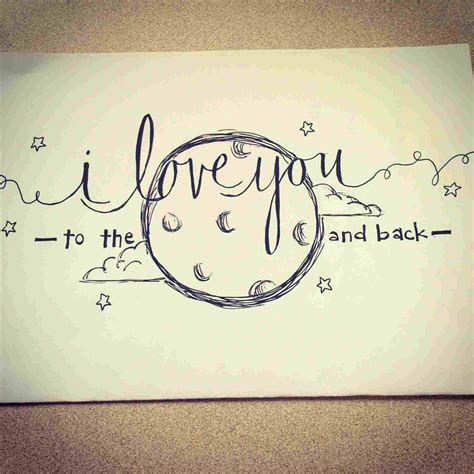 i love you
— to the and back —